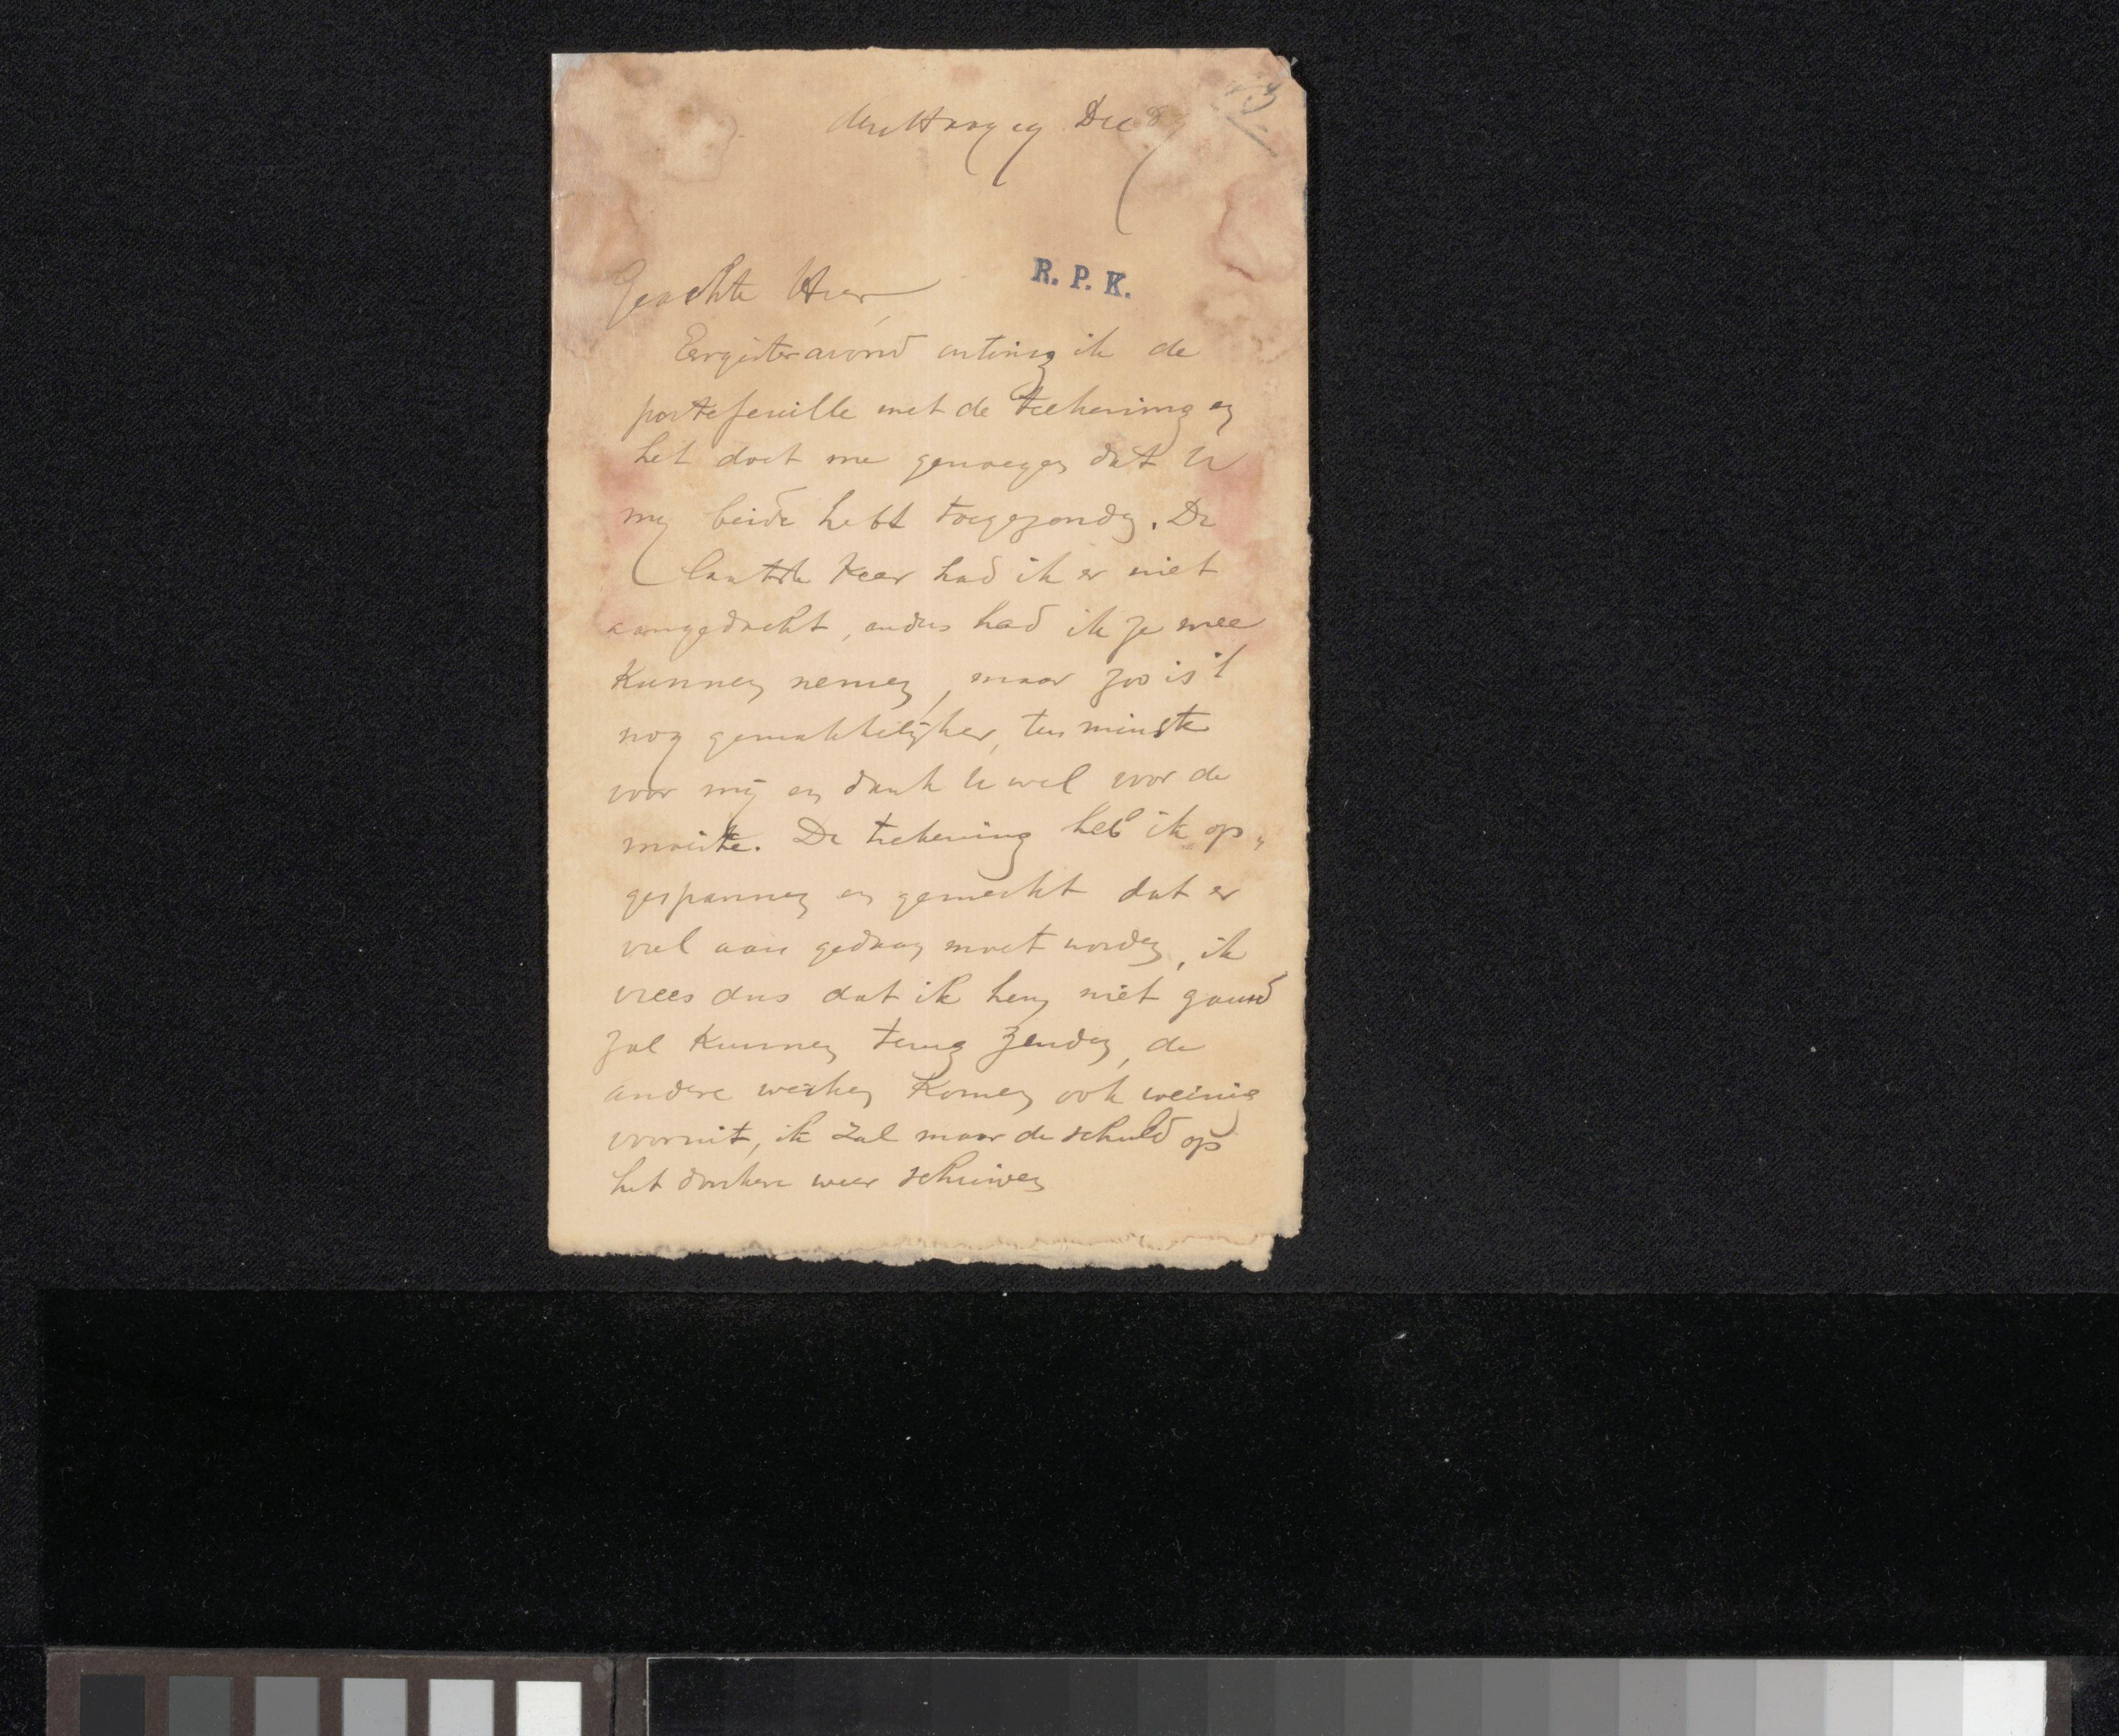 den Haag 19 Dec 89
Geachte Heer
R. P. K.
Eergisteravond ontving ik de
portefeuille met de teekening en
het doet me genoegen dat U
mij beide hebt toegezonden. De
laatste keer had ik er niet
aangedacht, anders had ik ze mee
kunnen nemen, maar zoo is 't
nog gemakkelijker, ten minste
voor mij en dank U wel voor de
moeite. De teekening heb ik op„
gespannen en gemerkt dat er
veel aan gedaan moet worden, ik
vrees dus dat ik hem niet gauw
zal kunnen terug zenden, de
andere werken komen ook weinig
vooruit, ik zal maar de schuld op
het donkere weer schuiven